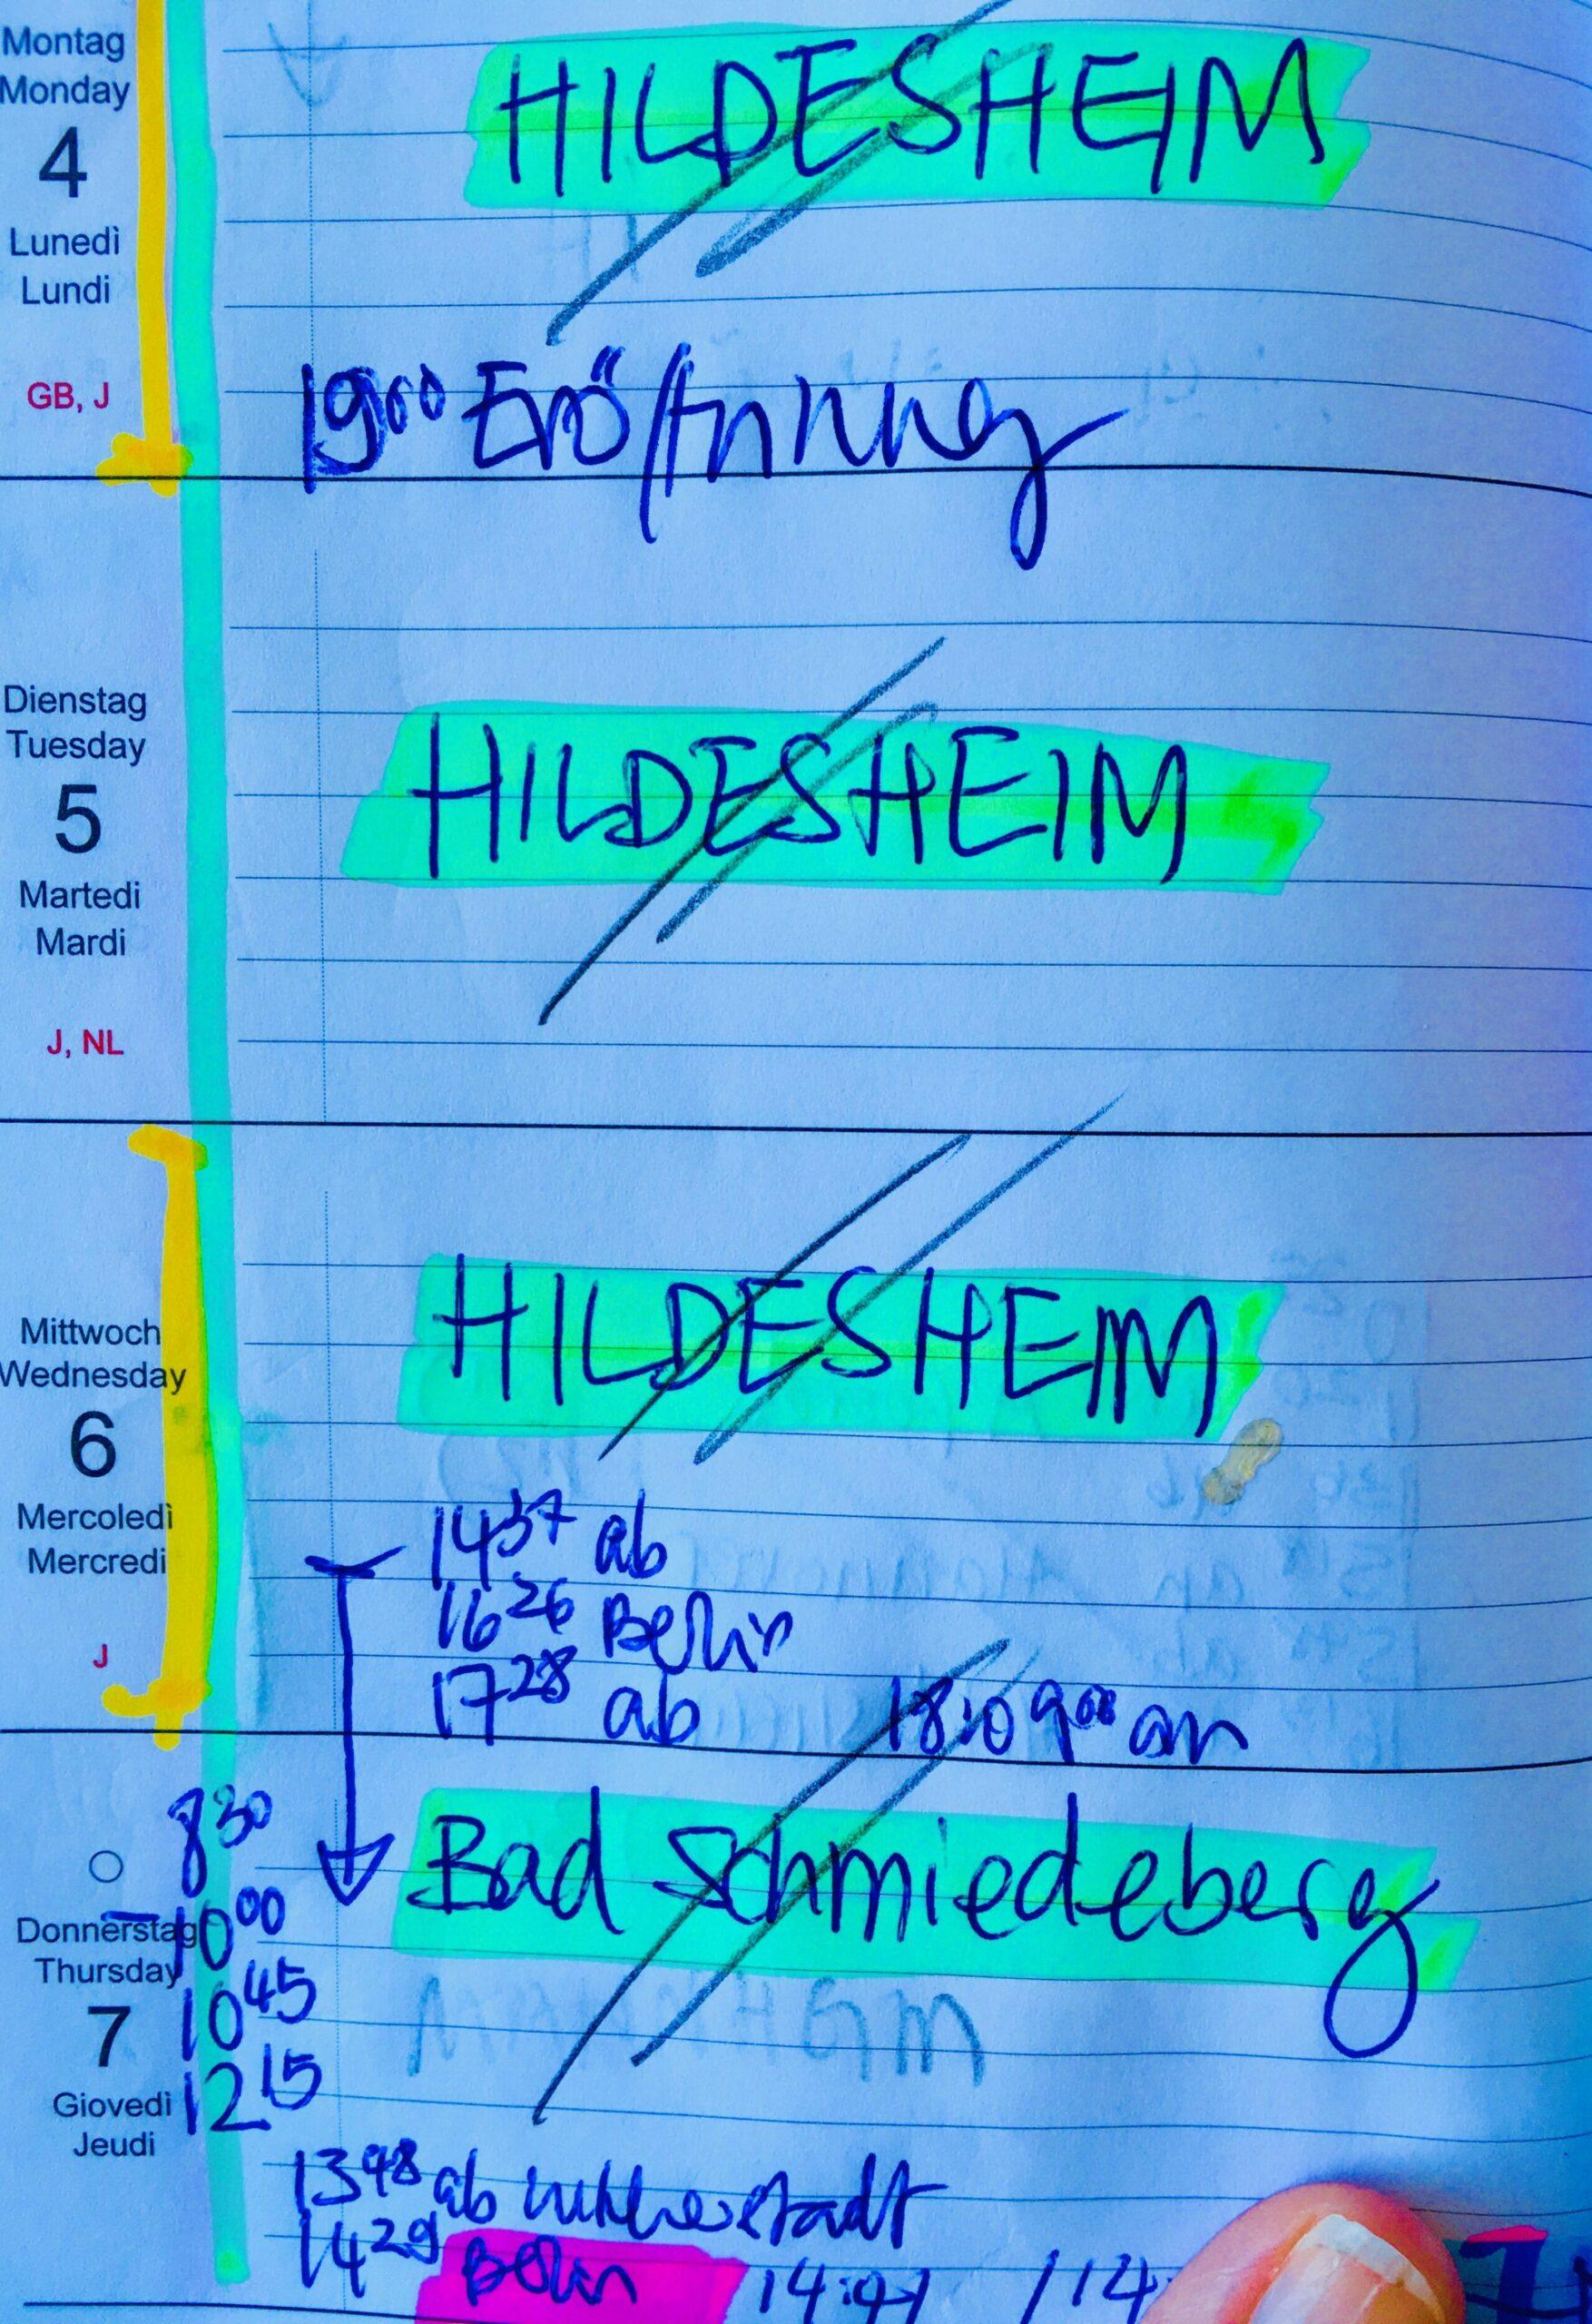 Montag
Monday
4
Lunedì
Lundi
GB, J
HILDESHEIM
19⁰⁰ Eröffnung
Dienstag
Tuesday
5
Martedi
Mardi
J, NL
HILDESHEIM
Mittwoch
Wednesday
6
Mercoledì
Mercredi
J
HILDESHEIM
14³⁷ ab
16²⁶ Berlin
17²⁸ ab an
Donnerstag
Thursday
7
Giovedì
Jeudi
8³⁰
10⁰⁰
10⁴⁵
12¹⁵
Bad Schmiedeberg
MANNHEIM
13⁴⁸ ab Lutherstadt
14²⁹ Berlin